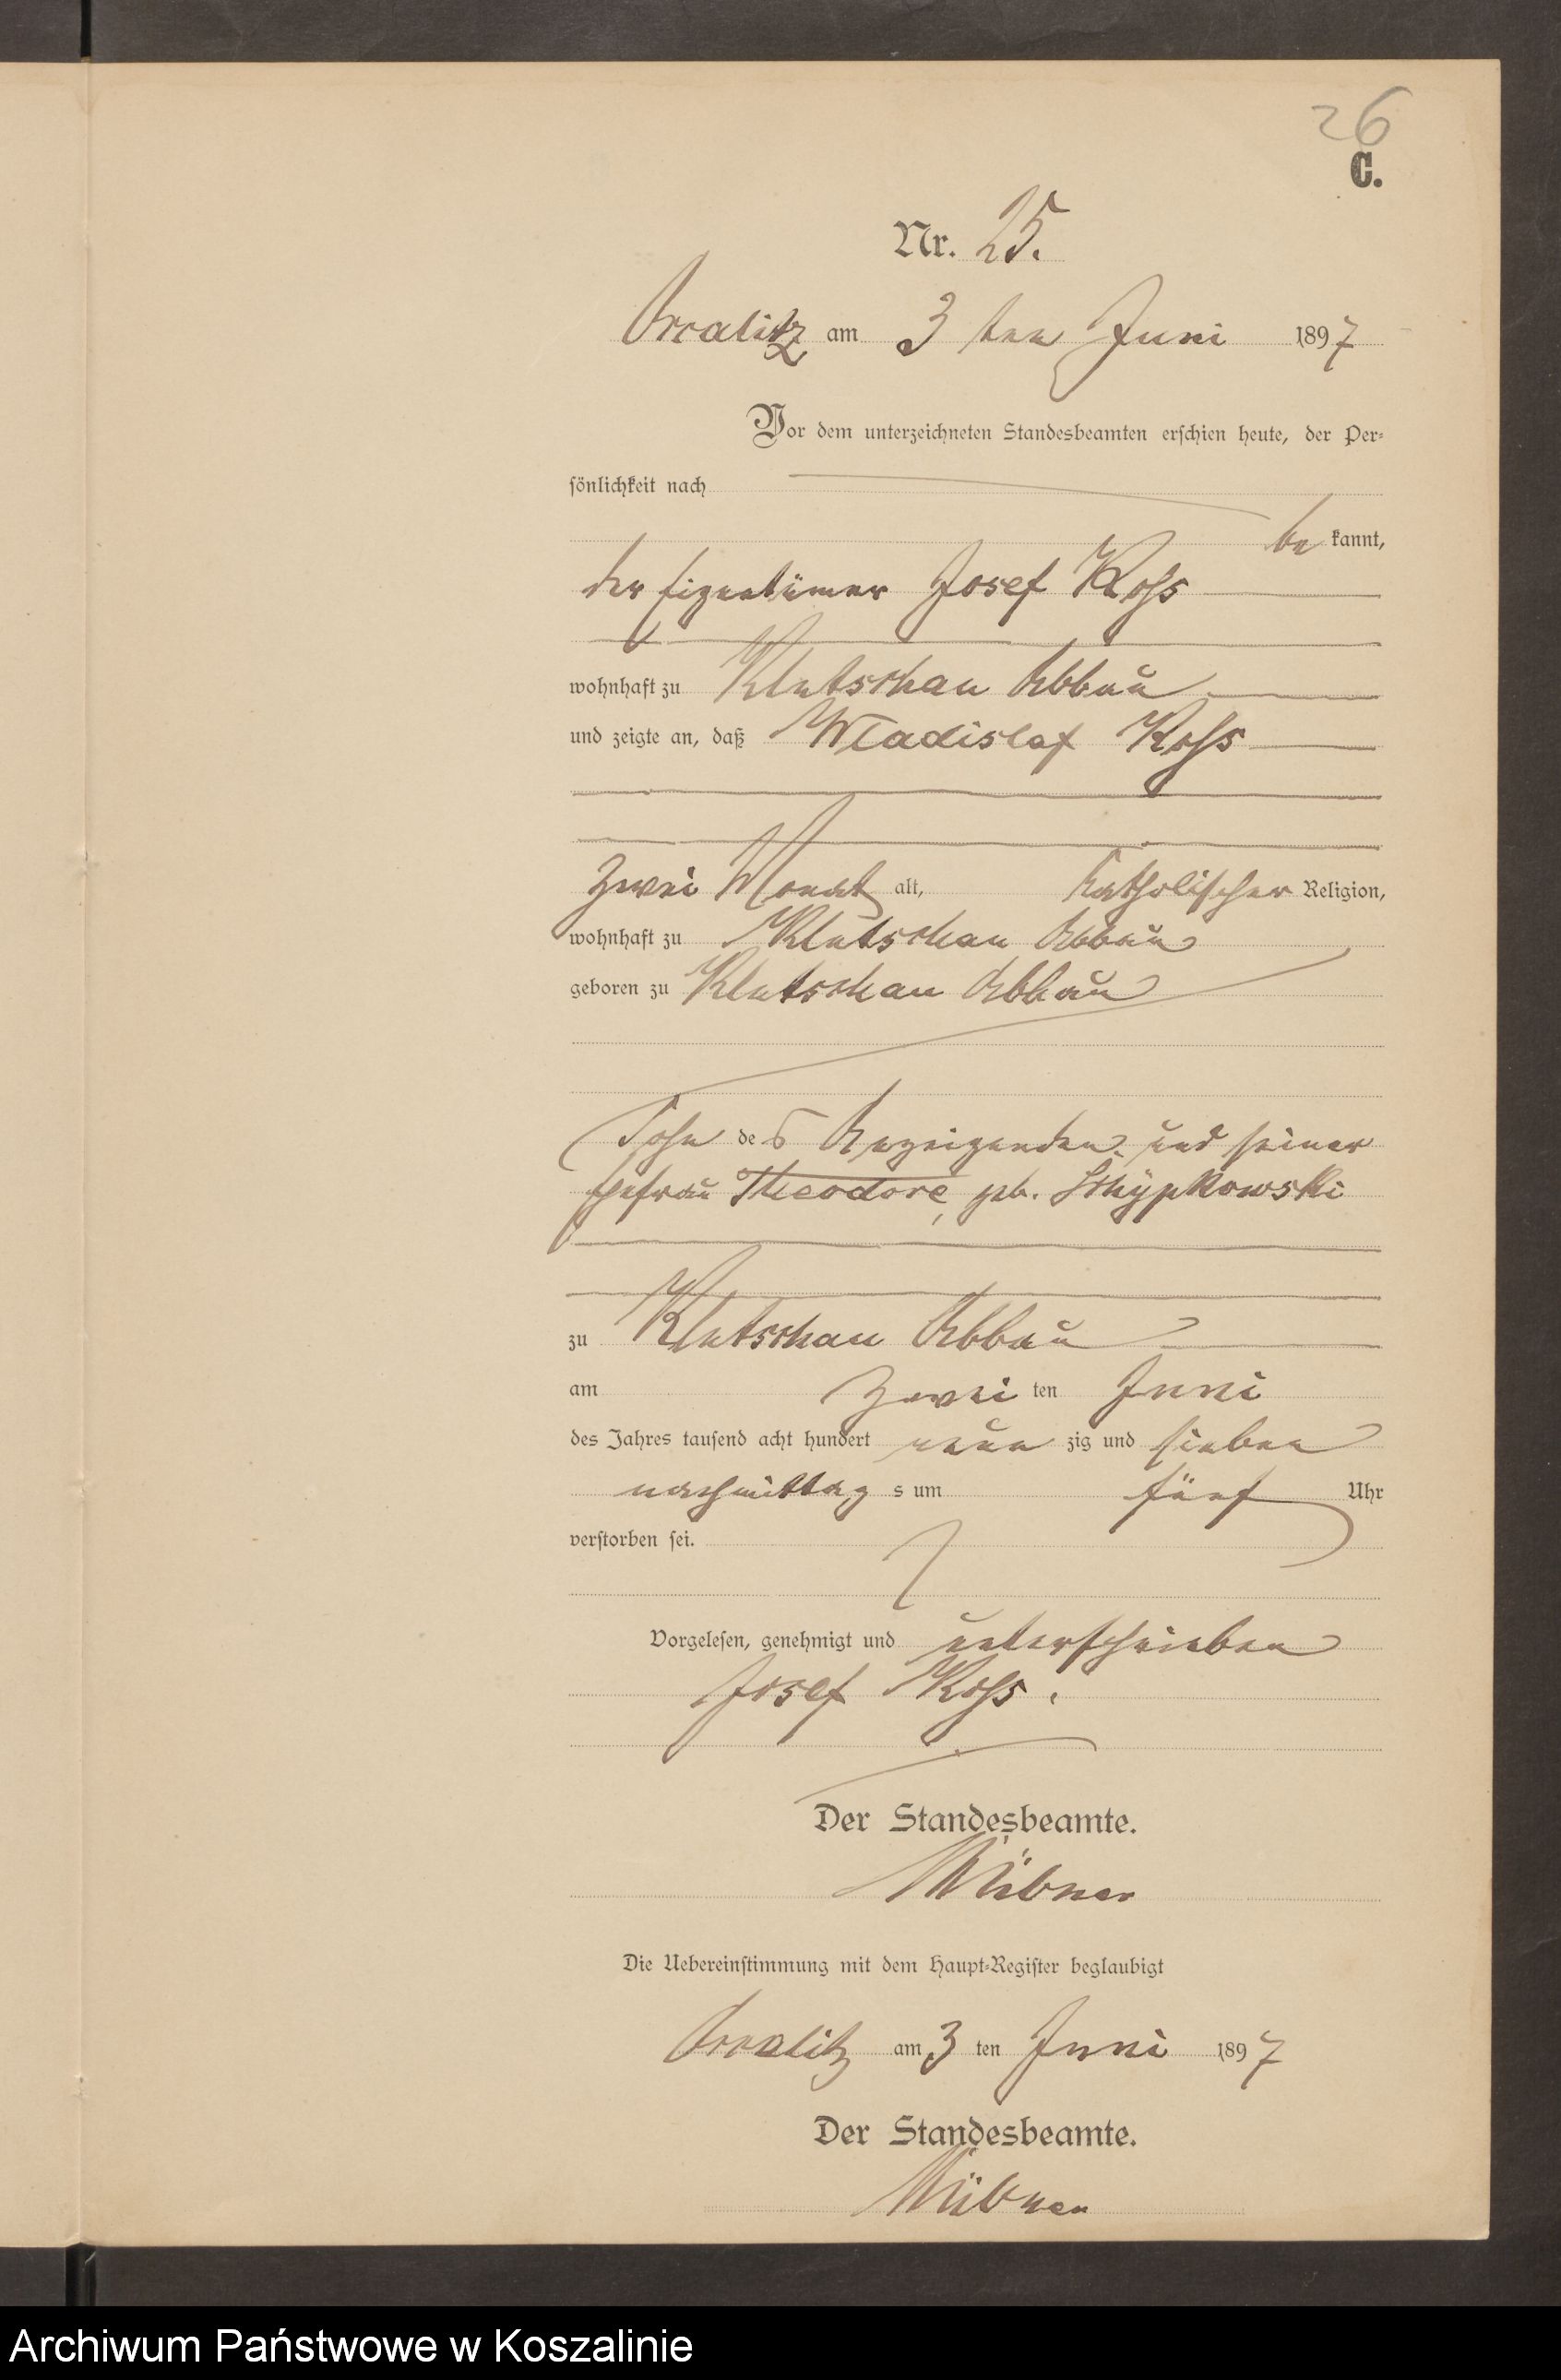 26
C.
Nr. 25.
Orralitz am 3 ten Juni 1897
Vor dem unterzeichneten Standesbeamten erschien heute, der Per-
sönlichkeit nach
be kannt,
der Eigentümer Josef Koss
wohnhaft zu Klutschau Abbau
und zeigte an, daß Wladislaf Koss
zwei Monat alt, katholischer Religion,
wohnhaft zu Klutschau Abbau
geboren zu Klutschau Abbau
Sohn des Anzeigenden und seiner
Ehefrau Theodore, geb. Schypkowski
zu Klutschau Abbau
am zwei ten Juni
des Jahres tausend acht hundert neun zig und sieben
nachmittag s um fünf Uhr
verstorben sei.
Vorgelesen, genehmigt und unterschrieben
Josef Koss.
Der Standesbeamte.
Die Uebereinstimmung mit dem Haupt-Register beglaubigt
Orralitz am 3 ten Juni 1897
Der Standesbeamte.
Archiwum Państwowe w Koszalinie